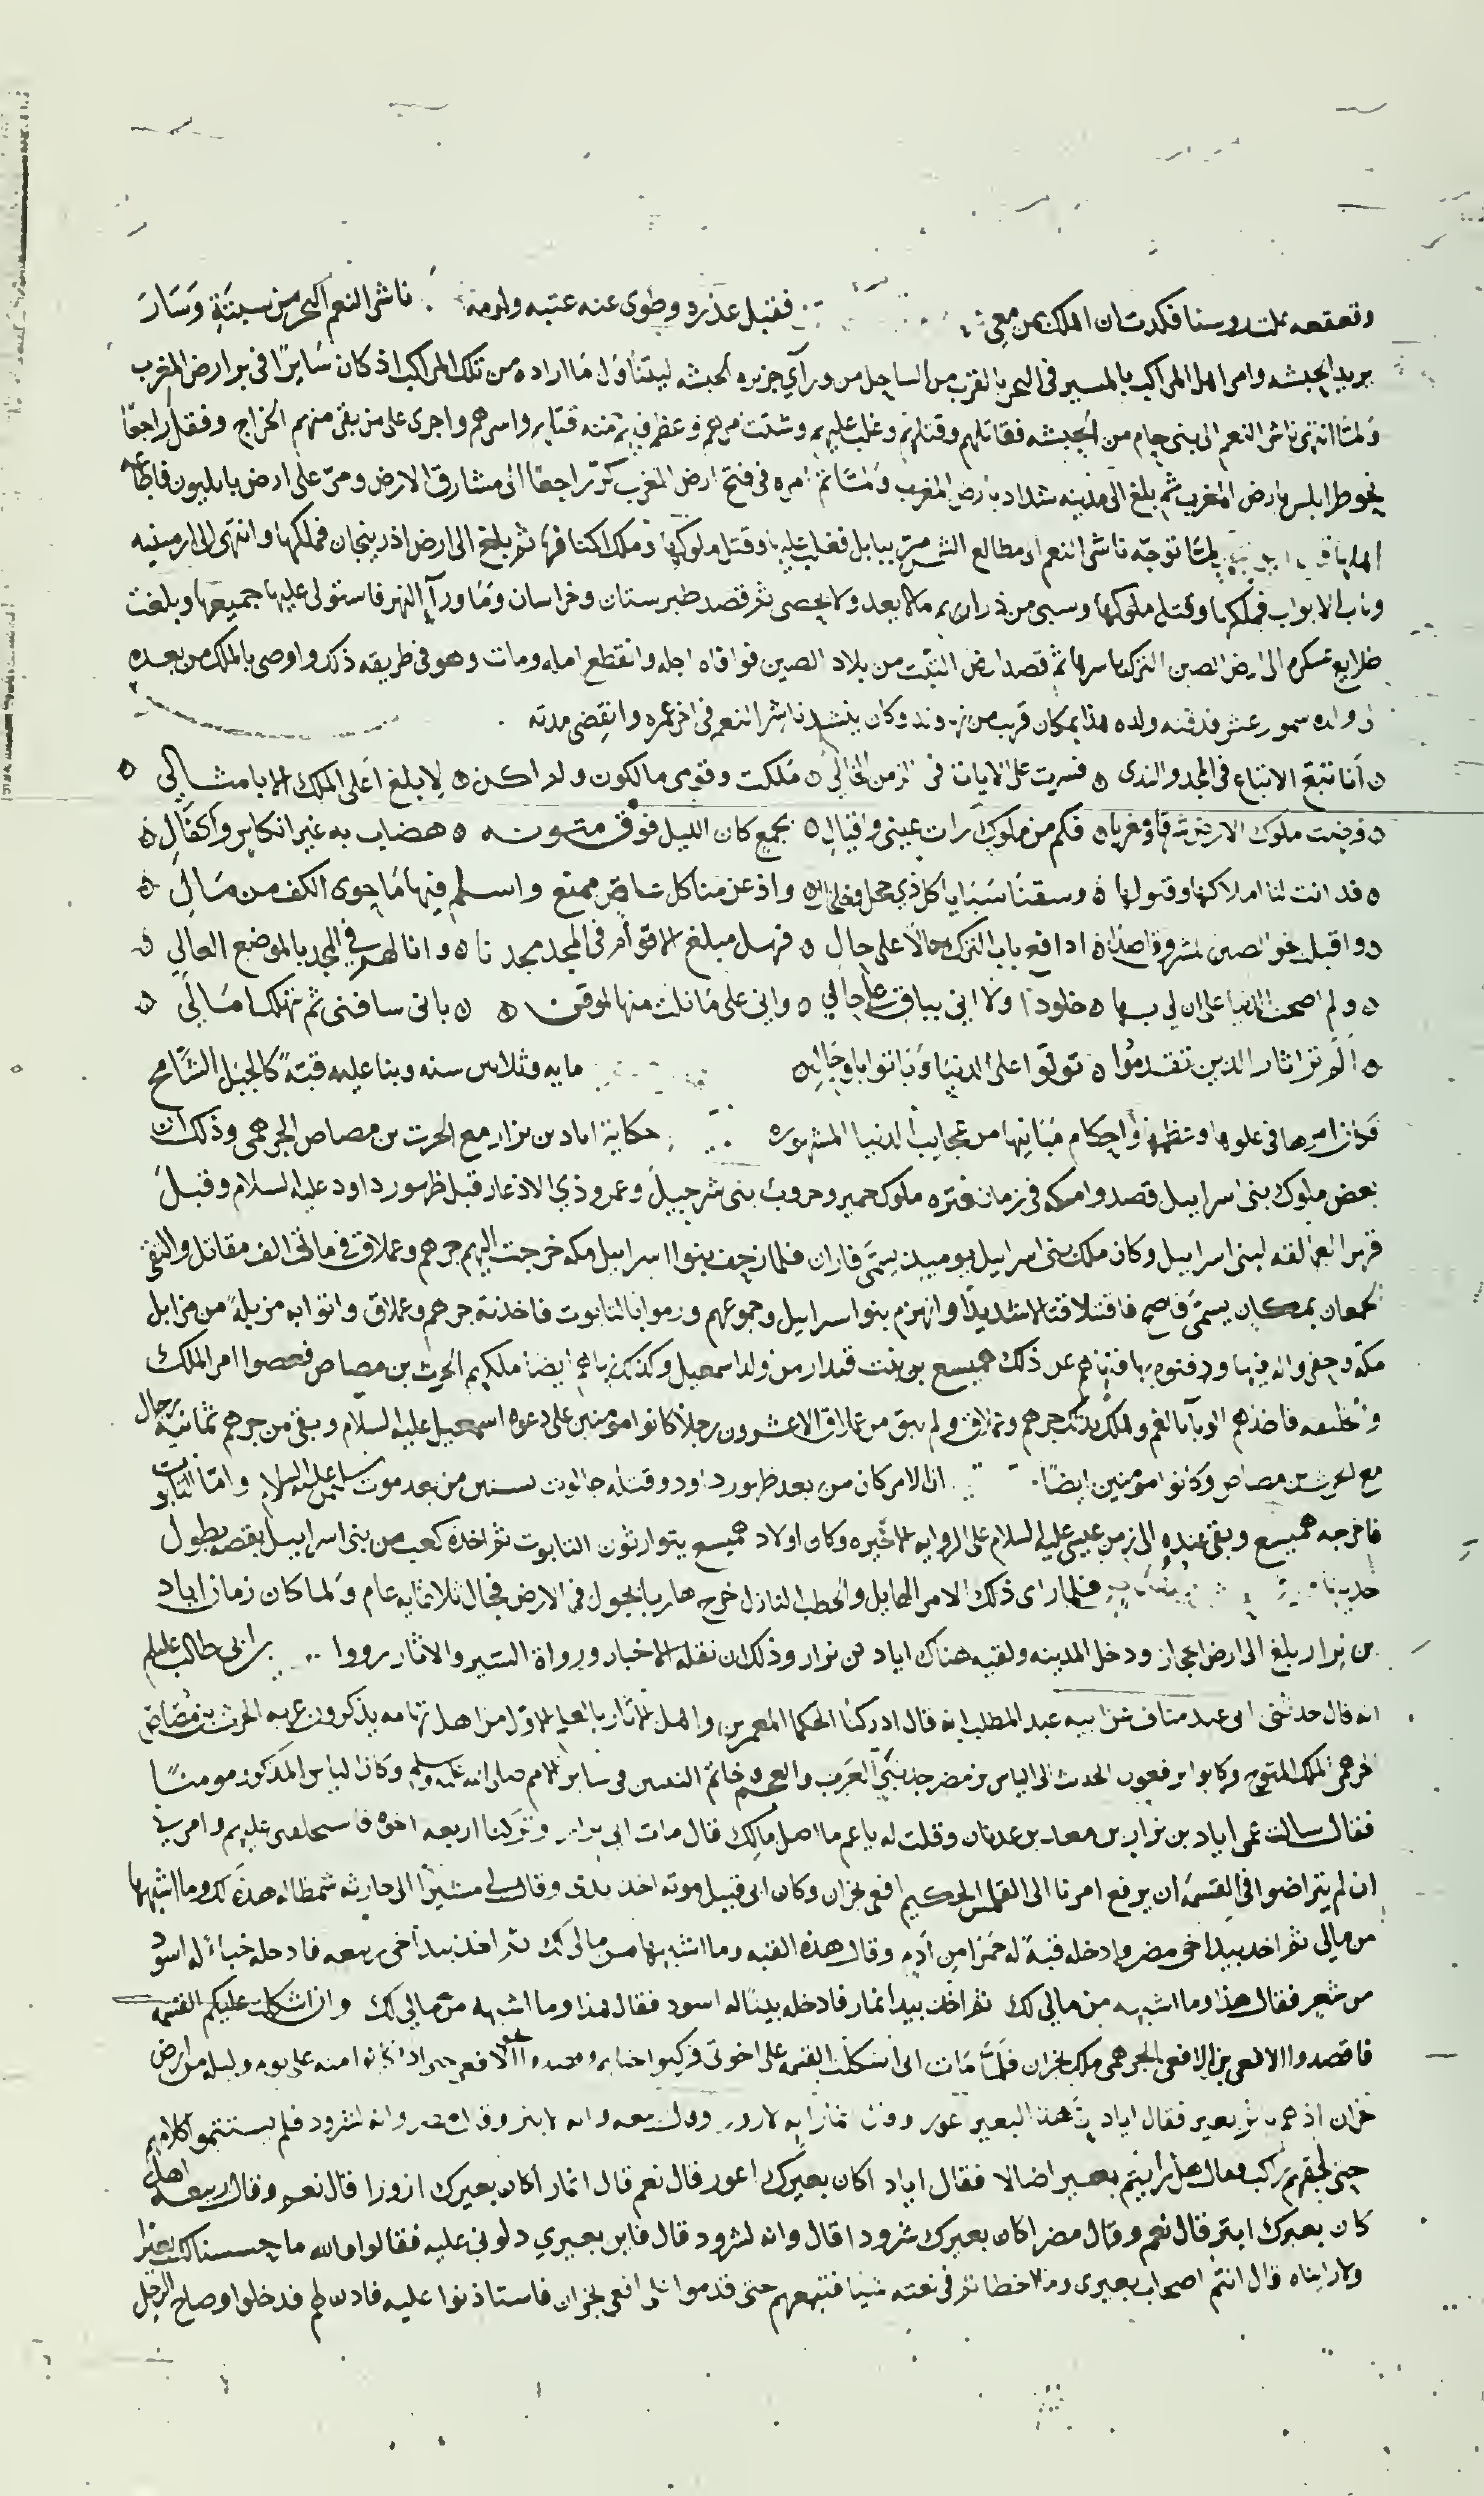 فقبل عذره وطوى عنه عتبه ولومه ناشر النعم البحر من سبتة وسار
يريد الحبشه وامر اهل المراكب بالمسير فى البحر بالقرب من الساحل من ورآي جزيره الحبشه ليتناول ما اراده من تلك المراكب اذ كان سايرًا فى بر ارض المغرب
ولما انتهى ناشر النعم الى بنى حام من الحبشه فقاتلهم وقتلهم وغلب عليهم وشتت شملهم وعظم فيهم قتله واسرهم واجرى على من بقى منهم الخراج وقفل راجعًا
نحو طرابلس بارض المغرب ثم بلغ الى مدينه شداد بارض المغرب ولما تم امره فى فتح ارض المغرب كرّ راجعًا الى مشارق الارض ومرّ على ارض بابليون
لما توجه ناشر النعم الى مطالع الشمس مرّ ببابل فغلب عليها وقتل ملوكها وملك اكنافها ثم بلغ الى ارض اذربيجان فملكها وانتهى الى ارمينيه
وباب الابواب فملكها وقتل ملوكها وسبى من ذراريهم ما لا يعد ولا يحصى ثم قصد طبرستان وخراسان وما ورآ النهر فاستولى عليها جميعها وبلغت
طلايع عسكره الى ارض الصين الترك باسرها ثم قصد ارض التبت من بلاد الصين فوافاه اجله وانقطع امله ومات وهو فى طريقه ذلك واوصى بالملك من بعده
ولده هذا بمكان قريب من نهاوند وكان ينشد ناشر النعم فى اخر عمره وانقضى مدته
ه أنا تبع الاتباع فى المجد والندى ه فسرت على الايات فى الزمن الخالي ه ملكت وقومى مالكون ولم اكن ه لابلغ اعلى الملك الا بامثالي ه
ملوك الارض شرقا ومغربا ه فكم من ملوك رات عينى واقيال ه بجمع كان الليل فوق متونه ه هضاب به غير انكاس واكفال ه
ه فدانت لنا املاكها وقيولها ه وسقنا سبايا كل ذي حجل وخلخال ه واذعن منا كل عاص ممنع واسلم فيها ما حوى الكف من مال ه
ه واقبل نحو الصين ه ادافع باب الترك حالا على حال ه فهل مبلغ الاقوام فى المجد مجدنا ه وانا لهم في المجد بالموضع العالي ه
ه ولم اصحب الدنيا على ان لي بها ه خلودًا ولا اني بباق على حالي ه واني على ما نلت منها لموقن ه ه بانى سافنى ثم تهلك امالي ه
ه ألم تر اثار الذين تقدموا ه تولّوا على الدنيا وباتوا باوجال ه مايه وثلاثين سنه وبنا عليه قبّة كالجبل الشامخ
فى علوها وعظمها واحكام مبانيها من عجايب الدنيا المشهوره حكاية اياد بن نزار مع الحرث بن مصاص الجرهمى وذلك ان
بعض ملوك بنى اسراييل قصدوا مكه فى زمان فتره ملوك حمير وحروب بنى شرحبيل وعمرو ذي الاذعار قبل ظهور داود عليه السلام وقبل
قهر العمالقه لبنى اسراييل وكان ملك بنى اسراييل يوميذ يسمّى فاران فلما زحف بنوا اسراييل مكه خرجت اليهم جرهم وعملاق فى مائتى الف مقاتل والتقى
الجمعان بمكان يسمّى فاضح فاقتتلا قتالا شديدًا وانهزم بنو اسراييل وجموعهم ورموا بالتابوت فاخذته جرهم وعملاق واتوا به مزبلةً من مزابل
مكة وحفروا له فيها ودفنوه بها فنهاهم عن ذلك هميسع بن بنت قيدار من ولد اسمعيل وكذلك نهاهم ايضا ملكهم الحرث بن مصاص فعصوا امر الملك
فاخذهم الوبآ بالغم والملك جرهم وعملاق ولم يبق من عملاق الا عشرون رجلًا كانوا مومنين على دعوه اسمعيل عليه السلام وبقى من جرهم ثمانية رجال
مع الحرث بن مصاص وكانوا مومنين ايضًا ان الامر كان من بعد ظهور داود وقتله جالوت بسنين من بعد موت سليمن عليه السلام وامّا التابوت
فاخرجه هميسع وبقى عنده الى زمن عيسى عليه السلام على الروايه الاخيره وكان اولاد هميسع يتوارثون التابوت ثم اخذه كعب من بنى اسراييل بقصه يطول
فلما راى ذلك الامر الهايل والخطب النازل خرج هاربا يجول فى الارض فجال ثلاثمايه عام ولما كان زمان اياد
بن نزار بلغ الى ارض الحجاز ودخل المدينه ولقيه هناك اياد بن نزار وذلك ان نقله الاخبار ورواة السير والاثار رووا بن ابى طالب
انه قال حدثنى ابى عبد مناف عن ابيه عبد المطلب انه قال ادركنا الحكما المعمرين واهل الاثار بالعلم الاول من اهل تهامه يذكرون غربه الحرث بن مصاص
الجرهمى الملك المتوج وكانوا يرفعون الحدث الى الياس بن مضر جد نبيّ العرب والعجم خاتم النبيين فى ساير الامم صلى الله عليه وسلم وكان الياس المذكور مومنًا
فقال سالت عمى اياد بن نزار بن معد بن عدنان وقلت له ياعم ما اصل مالك قال مات ابى نزار وتركنا اربعه اخوه فاستخلفنى عليهم وامرنى
ان لم يتراضوا فى القسمه ان يرفع امرنا الى القلمس الحكيم افعى نجران وكان ابى قبيل موته اخذ بيدى وقال لي مشيرًا الى جارية شمطا له هذه لك وما اشبهها
من مالي ثم اخذ بيد اخى مضر وادخله قبةً له حمرا من ادم وقال هذه القبه وما اشبهها من مالى لك ثم اخذ بيد اخى ربيعه فادخله خباءً له اسود
من شعر فقال هذا وما اشبهه من مالي لك ثم اخذ بيد انمار فادخله بيتًا له اسود فقال هذا وما اشبهه من مالي لك وان اشكلت عليكم القسمه
فاقصدوا الافعى بن الافعى الجرهمى ملك نجران فلمّا مات ابى اشكلت القسمه على اخوتى فركبوا الافعى حتى اذا كانوا منه على يوم وليله من ارض
نجران اذ هم باثر بعير فقال اياد هذا البعير عور وقال انمار انه لازور وانه لشرود فلم يستتموا كلامهم
حتى لحقهم راكب وقال هل رايتم بعير اضالا فقال اياد اكان بعيرك اعور قال نعم قال انمار أكان بعيرك ازورا قال نعم وقال ربيعه اهل
كان بعيرك ابتر قال نعم وقال مضر اكان بعيرك شرود اقال وانه لشرود قال فاين بعيري دلوني عليه فقالوا والله ما حسسنا لك بعيرا
ولا رايناه قال انتم اصحاب بعيرى وما اخطاتم فى نعته شيئا فتبعهم حتى قدموا على افعى نجران فاستاذنوا عليه فاذن لهم فدخلوا وصاح الرجل